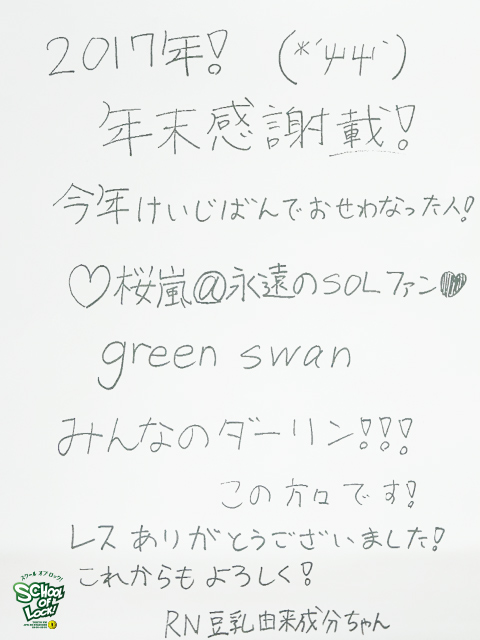 2017年! (*´ψψ`)
年末感謝載!
今年けいじばんでおせわなった人!
♡桜嵐@永遠のSOLファン♥
green swan
みんなのダーリン!!!
この方々です!
レスありがとうございました!
これからもよろしく!
RN豆乳由来成分ちゃん
スクール オブ ロック!
SCHOOL
OF
LOCK!